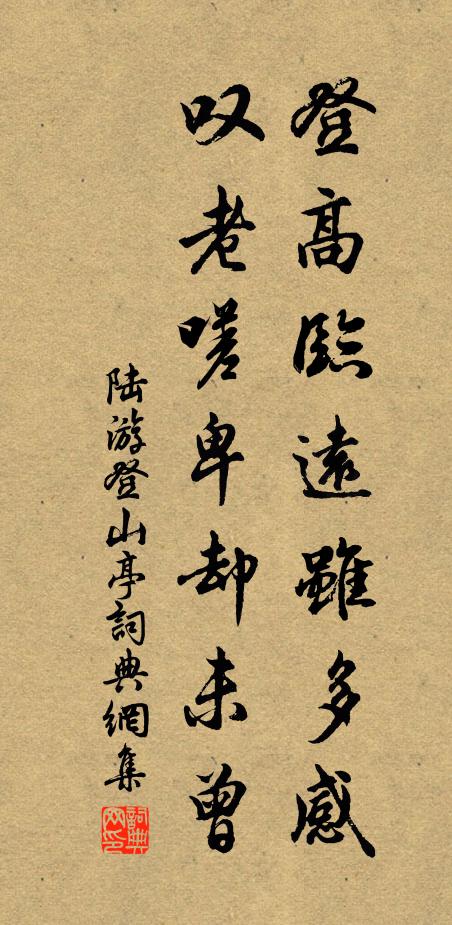 登高臨遠雖多感
叹老嗟卑却未曾
陆游登山亭詞典網集
詞典网印